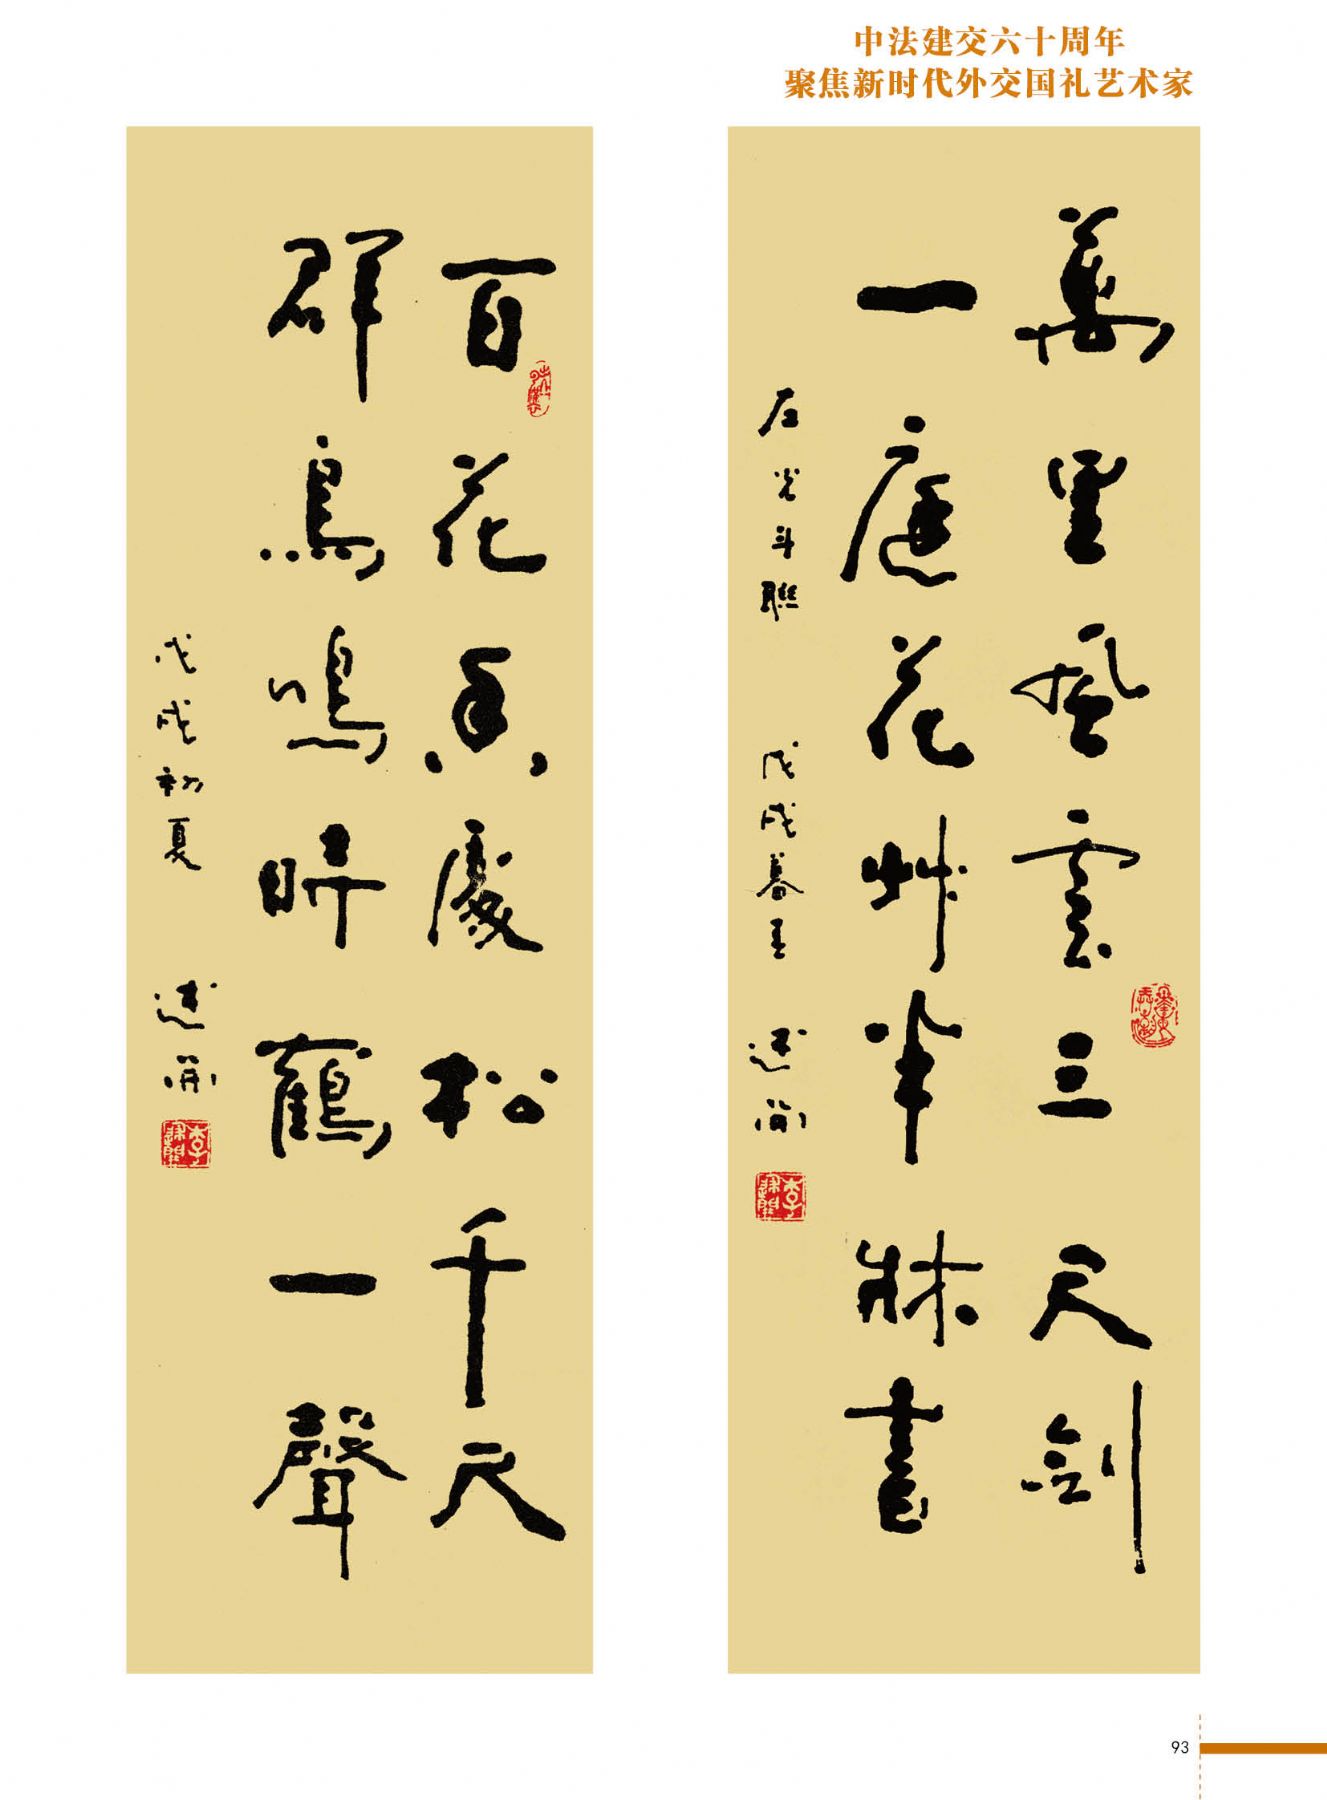 中法建交六十周年
聚焦新时代外交国礼艺术家
萬里風雲三尺劍
一庭花艸半牀書
左光斗聯 戊戌暮春
百花香處松千尺
群鳥鳴時鶴一聲
戊戌初夏
93